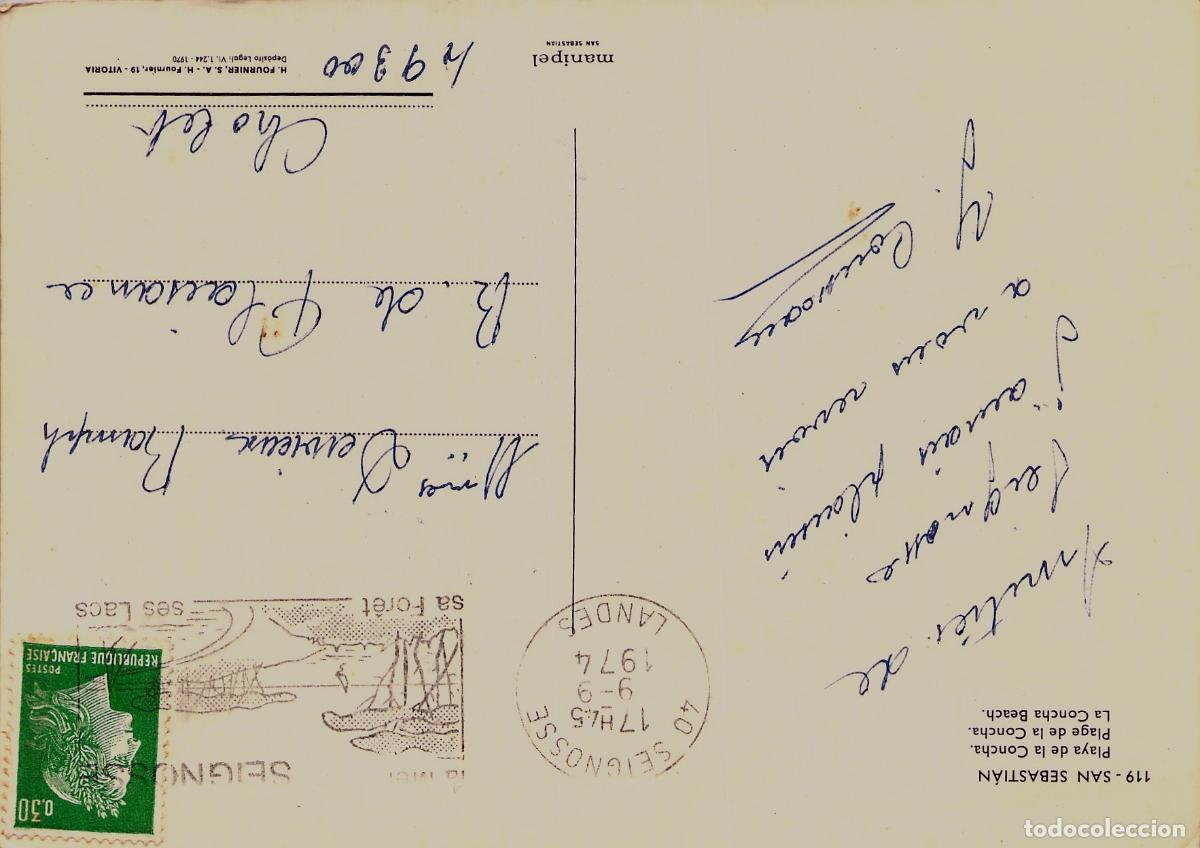 119 - SAN SEBASTIÁN
Playa de la Concha.
Plage de la Concha.
La Concha Beach.
Amitiés de
Seignosse
J'aurais plaisir
a vous revoir
Y.
SEIGNOSSE
la Mer
sa Forêt
ses Lacs
40 SEIGNOSSE
17H45
9-9
1974
LANDES
0,30
POSTES
REPUBLIQUE FRANÇAISE
Mmes Dervieux
R. de Plaisance
Cholet
49300
manipel
SAN SEBASTIAN
H. FOURNIER, S. A. - H. Fournier, 19 - VITORIA
Depósito Legal: VI. 1.244 - 1970
todocoleccion